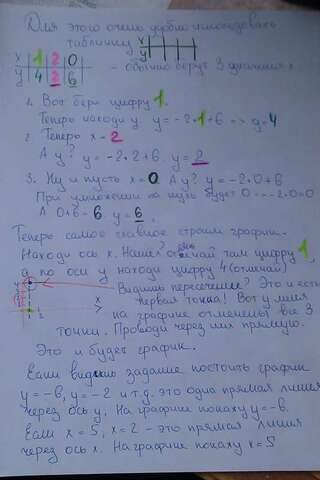 Для этого очень удобно использовать
табличку x y
x 1 2 0
y 4 2 6 - обычно беру 3 значения x.
1. Вот беру цифру 1.
Теперь находи y. y = -2•1+6 => y=4
2. Теперь x = 2
А y? y = -2•2+6. y = 2
3. Ну и пусть x = 0. А y? y = -2•0+6
При умножении на нуль будет 0 - -2•0=0
А 0+6 = 6 y = 6.
Теперь самое главное строим график.
Находи ось x. Нашел? Отмечай там цифру 1,
а по оси y находи цифру 4 (отмечай)
Видишь пересечение? Это и есть
первая точка! Вот у меня
на графике отмечены все 3
точки. Проводи через них прямую.
Это и будет график.
Если видишь задание построить график
y = -6, y = -2 и т.д. это одна прямая линия
через ось y. На графике покажу y = -6.
Если x = 5, x = 2 - это прямая линия
через ось x. На графике покажу x = 5